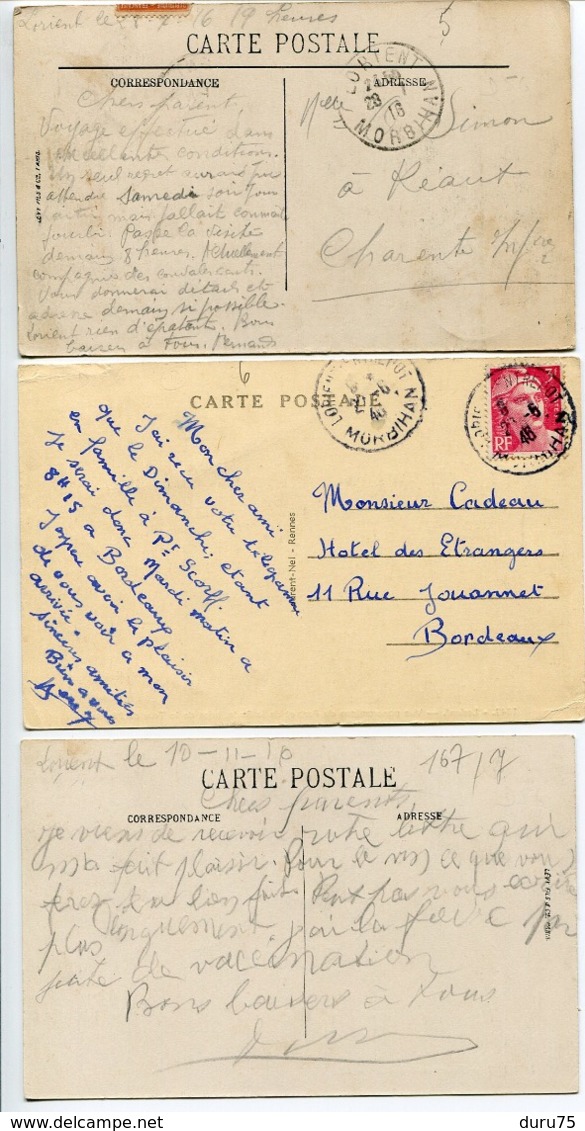 Lorient le 16 19 heures
5
CARTE POSTALE
CORRESPONDANCE
ADRESSE
LORIENT
23 16
MORBIHAN
Chers Parent,
Voyage effectué dans
excellentes conditions.
Un seul regret
attendre Samedi soir
mais fallait
Passe la visite
demain 8 heures. Actuellement
compagnie des convalescents.
Vous donnerai détails et
adresse demain si possible.
Lorient rien d'épatant. Bons
baisers à Tous. Fernand
Melle Simon
à Réaut
Charente Infre
6
CARTE POSTALE
MORBIHAN
RF
Mon cher ami
J'ai reçu votre télégramme
que le Dimanche, étant
en famille à Pt Scorff.
Je serai donc Mardi matin a
8H15 a Bordeaux
J'espère avoir le plaisir
de vous voir a mon
arrivée.
Sincères amitiés
Bien a vous
Monsieur Cadeau
Hotel des Etrangers
11 Rue Jouannet
Bordeaux
Laurent-Nel - Rennes
Lorient le 10-11-16
167/7
CARTE POSTALE
CORRESPONDANCE
ADRESSE
Chers parents,
je viens de recevoir votre lettre qui
m'a fait plaisir. Pour le vin ce que vous
ferez sera bien fait. Peut pas vous écrire
plus longuement. j'ai la fièvre par
suite de vaccination
Bons baisers à Tous
delcampe.net
duru75